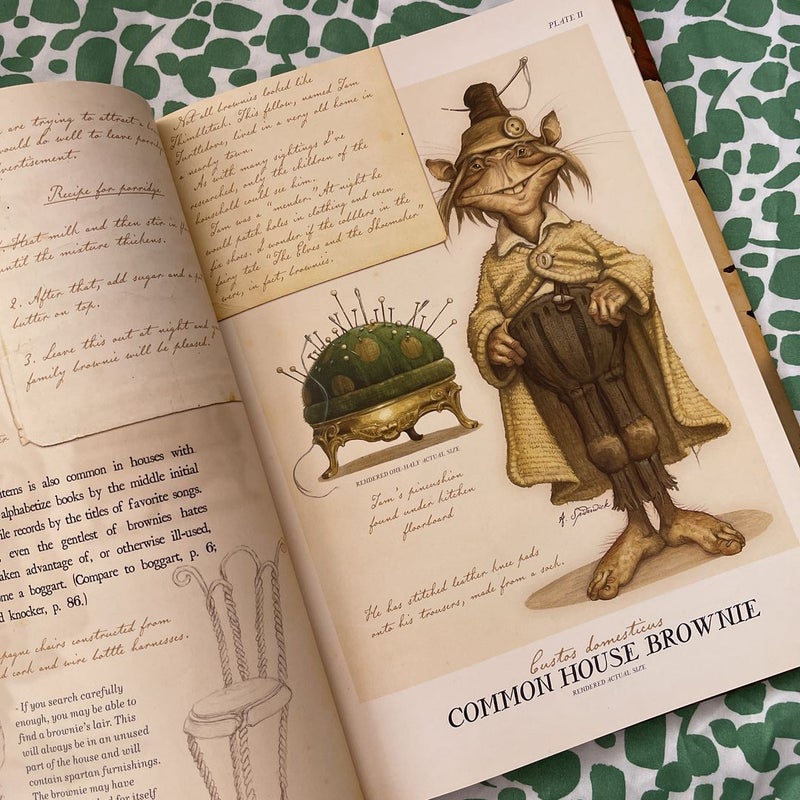 are trying to attract a
would do well to leave porri
vertisement.
Recipe for porridge
1. Heat milk and then stir in
until the mixture thickens.
2. After that, add sugar and a
butter on top.
3. Leave this out at night and
family brownie will be pleased.
tems is also common in houses with
alphabetize books by the middle initial
file records by the titles of favorite songs.
even the gentlest of brownies hates
aken advantage of, or otherwise ill-used,
me a boggart. (Compare to boggart, p. 6;
d knocker, p. 86.)
pagne chairs constructed from
d cork and wire bottle harnesses.
If you search carefully
enough, you may be able to
find a brownie's lair. This
will always be in an unused
part of the house and will
contain spartan furnishings.
The brownie may have
ed for itself
Not all brownies looked like
Thimbletack. This fellow, named Tam
Turtledove, lived in a very old home in
a nearby town.
As with many sightings I've
researched, only the children of the
household could see him.
Tam was a "mender." At night he
would patch holes in clothing and even
fix shoes. I wonder if the cobblers in the
fairy tale "The Elves and the Shoemaker"
were, in fact, brownies.
PLATE II
RENDERED ONE-HALF ACTUAL SIZE
Tam's pincushion
found under kitchen
floorboard
A. Spiderwick
He has stitched leather knee pads
onto his trousers, made from a sock.
Custos domesticus
COMMON HOUSE BROWNIE
RENDERED ACTUAL SIZE